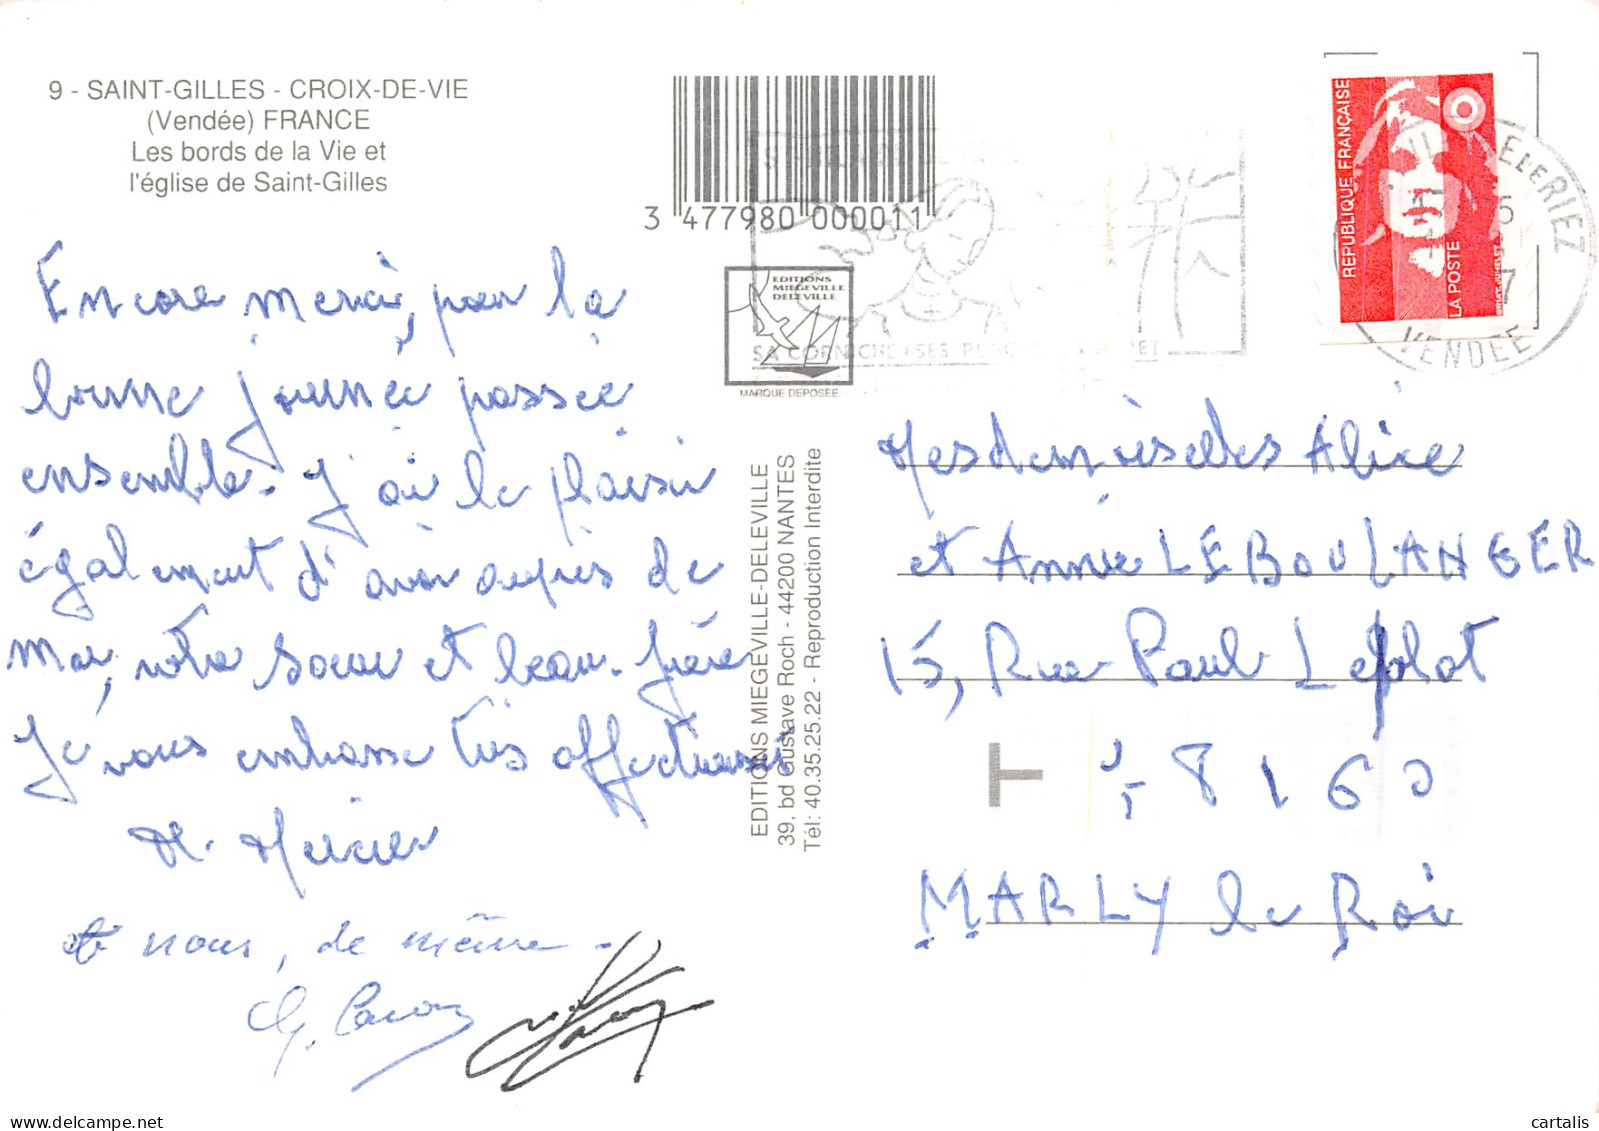 9 - SAINT-GILLES - CROIX-DE-VIE
(Vendée) FRANCE
Les bords de la Vie et
l'église de Saint-Gilles
3 477980 000011
EDITIONS
MIEGEVILLE
DELEVILLE
MARQUE DEPOSEE
REPUBLIQUE FRANÇAISE
LA POSTE
VENDEE
SA CORNICHE SES
Encore merci, pour la
bonne journée passée
ensemble. J'ai le plaisir
également d'avoir auprès de
moi, votre soeur et beau-frère
Je vous embrasse très affectueus
M. Mercier
et nous, de même -
EDITIONS MIEGEVILLE-DELEVILLE
39, bd Gustave Roch - 44200 NANTES
Tél: 40.35.25.22 - Reproduction Interdite
Mesdemoiselles Alice
et Annie LEBOULANGER
15, Rue Paul Leplat
T 78160
MARLY le Roi
cartalis www.delcampe.net